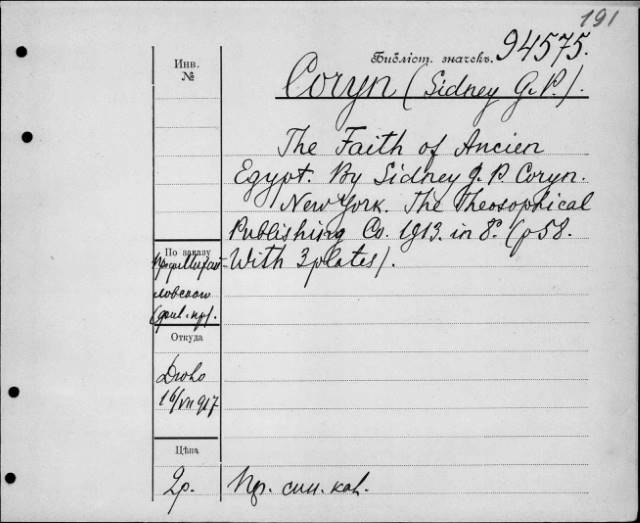 191
Библіот. значекъ. 94575.
Инв. №
Coryn (Sidney G. P.).
The Faith of Ancien
Egypt. By Sidney G. P. Coryn.
New York. The Theosophical
Publishing Co. 1913. in 8º. (p 58.
With 3 plates).
По заказу
ловскою
Откуда
16/VII 917
Цѣна
2р.
Пр. син. каб.